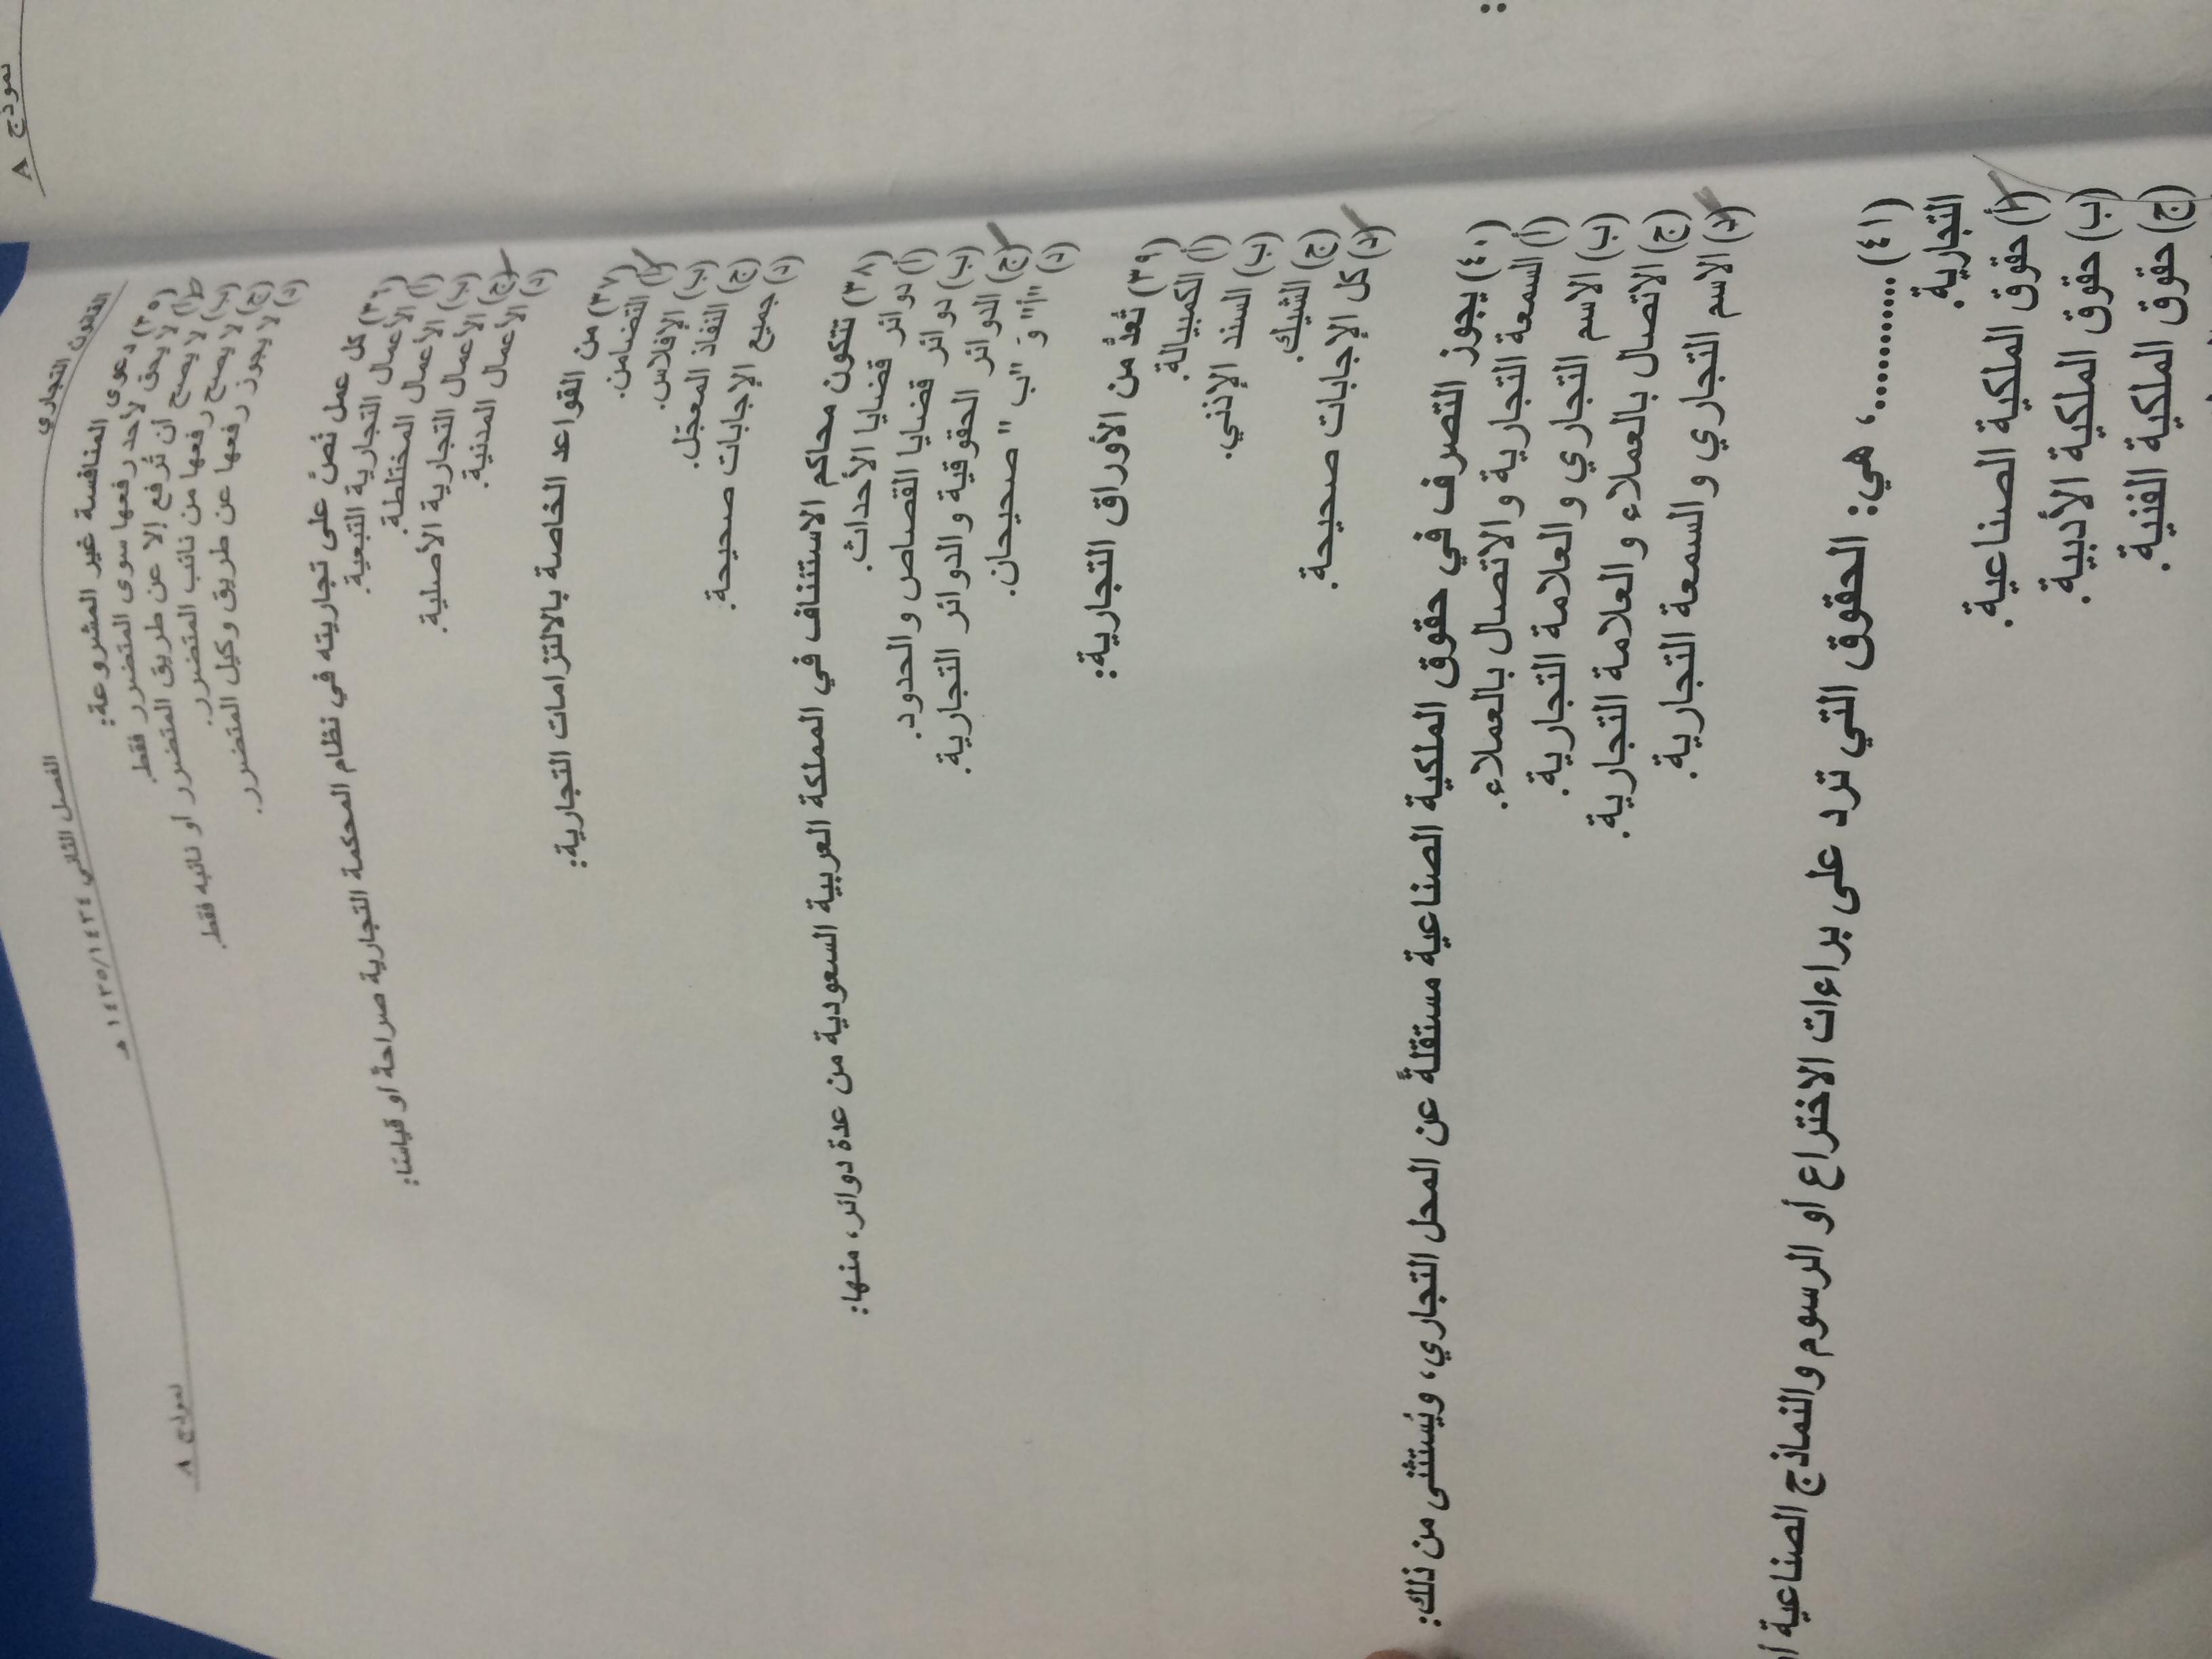 نموذج A
القانون التجاري الفصل الثاني ١٤٣٥/١٤٣٤ هـ نموذج A
(٣٥) دعوى المنافسة غير المشروعة:
(أ) لا يحق لأحد رفعها سوى المتضرر فقط.
(ب) لا يصح أن تُرفع إلا عن طريق المتضرر أو نائبه فقط.
(ج) لا يصح رفعها من نائب المتضرر.
(د) لا يجوز رفعها عن طريق وكيل المتضرر.
(٣٦) كل عمل نُصَّ على تجاريته في نظام المحكمة التجارية صراحة أو قياسًا:
(أ) الأعمال التجارية التبعية.
(ب) الأعمال المختلطة.
(ج) الأعمال التجارية الأصلية.
(د) الأعمال المدنية.
(٣٧) من القواعد الخاصة بالالتزامات التجارية:
(أ) التضامن.
(ب) الإفلاس.
(ج) النفاذ المعجّل.
(د) جميع الإجابات صحيحة.
(٣٨) تتكون محاكم الاستئناف في المملكة العربية السعودية من عدة دوائر، منها:
(أ) دوائر قضايا الأحداث.
(ب) دوائر قضايا القصاص والحدود.
(ج) الدوائر الحقوقية والدوائر التجارية.
(د) "أ" و "ب" صحيحان.
(٣٩) تُعدُّ من الأوراق التجارية:
(أ) الكمبيالة.
(ب) السند الإذني.
(ج) الشيك.
(د) كل الإجابات صحيحة.
(٤٠) يجوز التصرف في حقوق الملكية الصناعية مستقلةً عن المحل التجاري، ويُستثنى من ذلك:
(أ) السمعة التجارية والاتصال بالعملاء.
(ب) الاسم التجاري والعلامة التجارية.
(ج) الاتصال بالعملاء والعلامة التجارية.
(د) الاسم التجاري والسمعة التجارية.
(٤١) ............، هي: الحقوق التي ترد على براءات الاختراع أو الرسوم والنماذج الصناعية
التجارية.
(أ) حقوق الملكية الصناعية.
(ب) حقوق الملكية الأدبية.
(ج) حقوق الملكية الفنية.